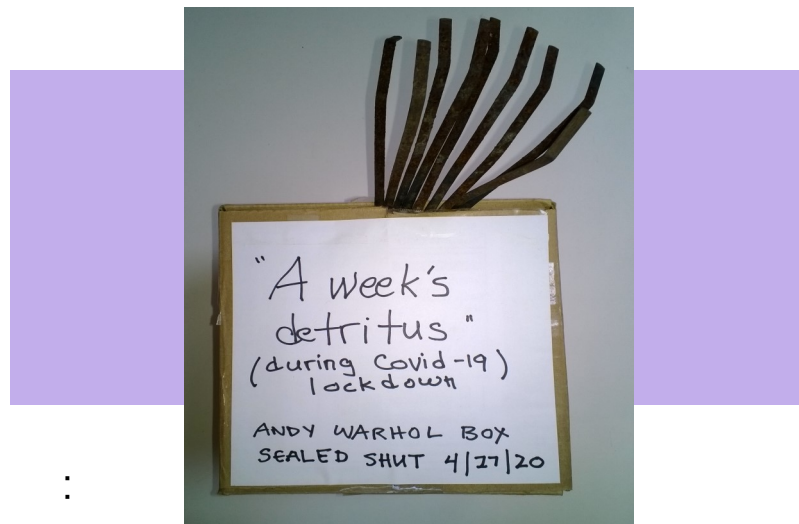 "A week's
detritus"
(during Covid-19)
lockdown
ANDY WARHOL BOX
SEALED SHUT 4/27/20
: